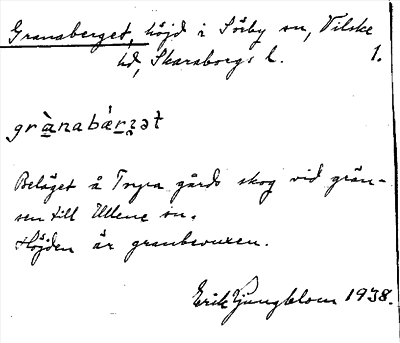 Granaberget, höjd i Sörby sn, Vilske
hd, Skaraborgs l. 1.
grànabær̀ʒət
Beläget å Tryra gårds skog vid grän-
sen till Ullene sn.
Höjden är granbevuxen.
Erik Ljungblom 1938.